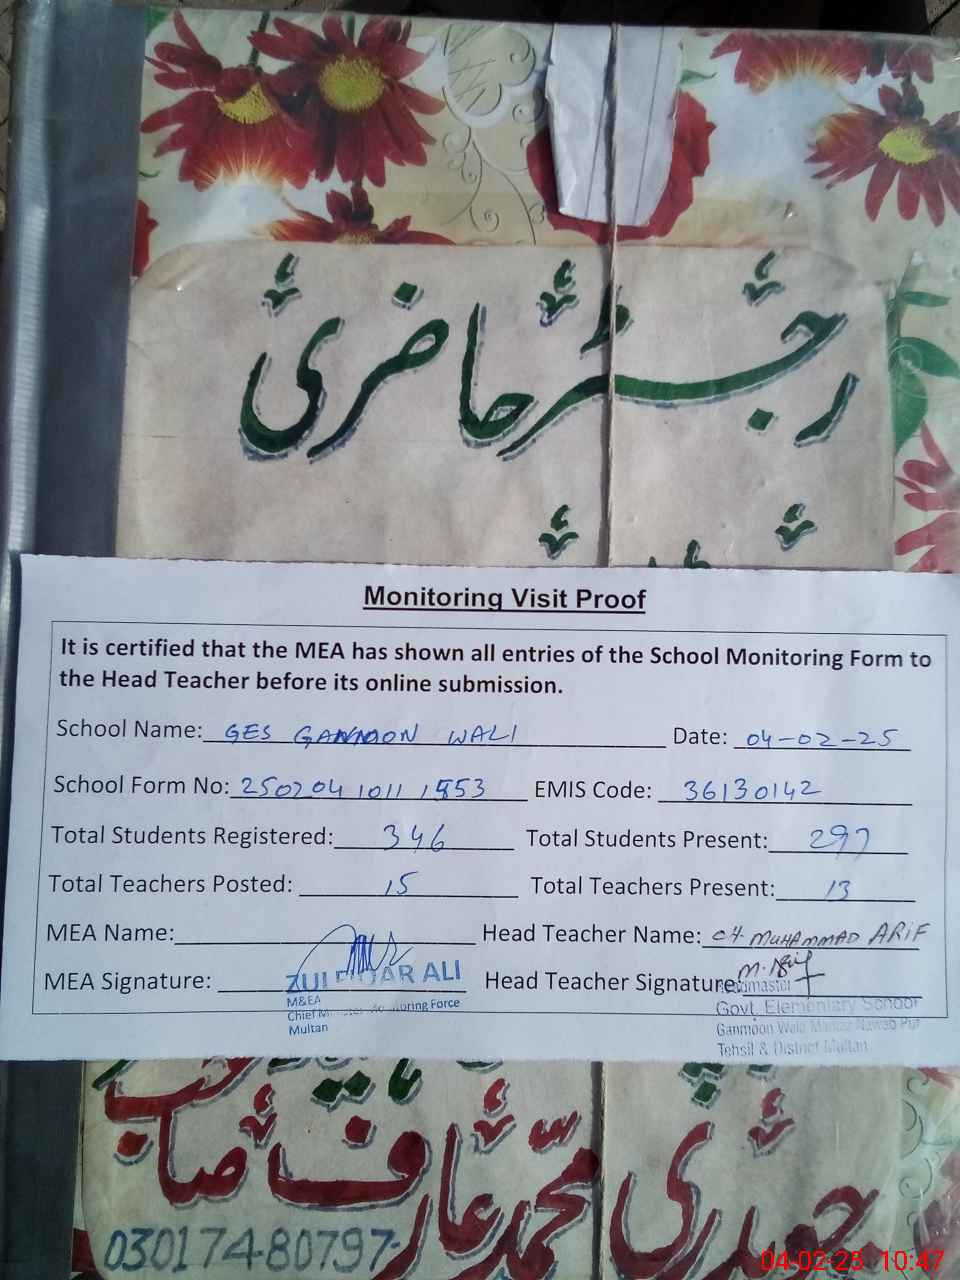 رجسٹر حاضری
Monitoring Visit Proof
It is certified that the MEA has shown all entries of the School Monitoring Form to
the Head Teacher before its online submission.
School Name: GES GANMOON WALI Date: 04-02-25
School Form No: 250204 1011 1853 EMIS Code: 36130142
Total Students Registered: 346 Total Students Present: 297
Total Teachers Posted: 15 Total Teachers Present: 13
MEA Name: Head Teacher Name: CH MUHAMMAD ARIF
MEA Signature: Head Teacher Signature: M. Arif
ZULFIQAR ALI
M&EA
Chief Minister Monitoring Force
Multan
Headmaster
Govt. Elementary School
Ganmoon Wala Nawab Pur
Tehsil & District Multan
چوہدری محمد عارف صاحب
030174-80797-
04-02-25 10:47